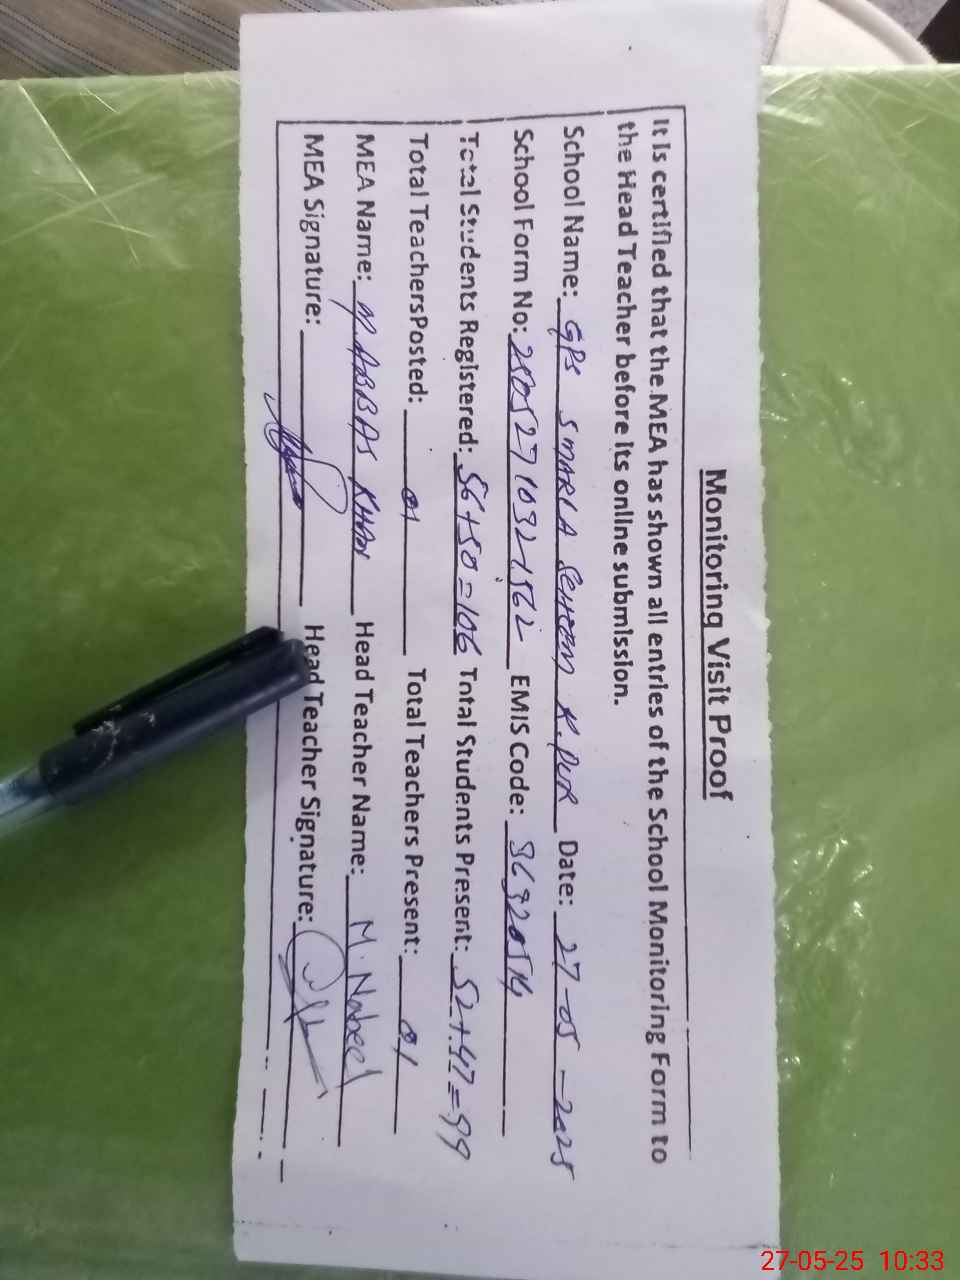 Monitoring Visit Proof
It is certified that the MEA has shown all entries of the School Monitoring Form to
the Head Teacher before its online submission.
School Name: GPS 5 MARLA SCHEEM K.PUR Date: 27-05-2025
School Form No: 25052710321562 EMIS Code: 36320514
Total Students Registered: 56+50=106 Total Students Present: 52+47=99
Total TeachersPosted: 01 Total Teachers Present: 01
MEA Name: M.ABBAS KHAN Head Teacher Name: M. Nabeel
MEA Signature: Head Teacher Signature:
27-05-25 10:33